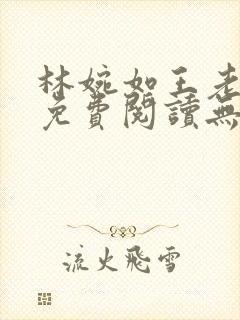 林婉如王老
免費閱讀無
流火飛雪